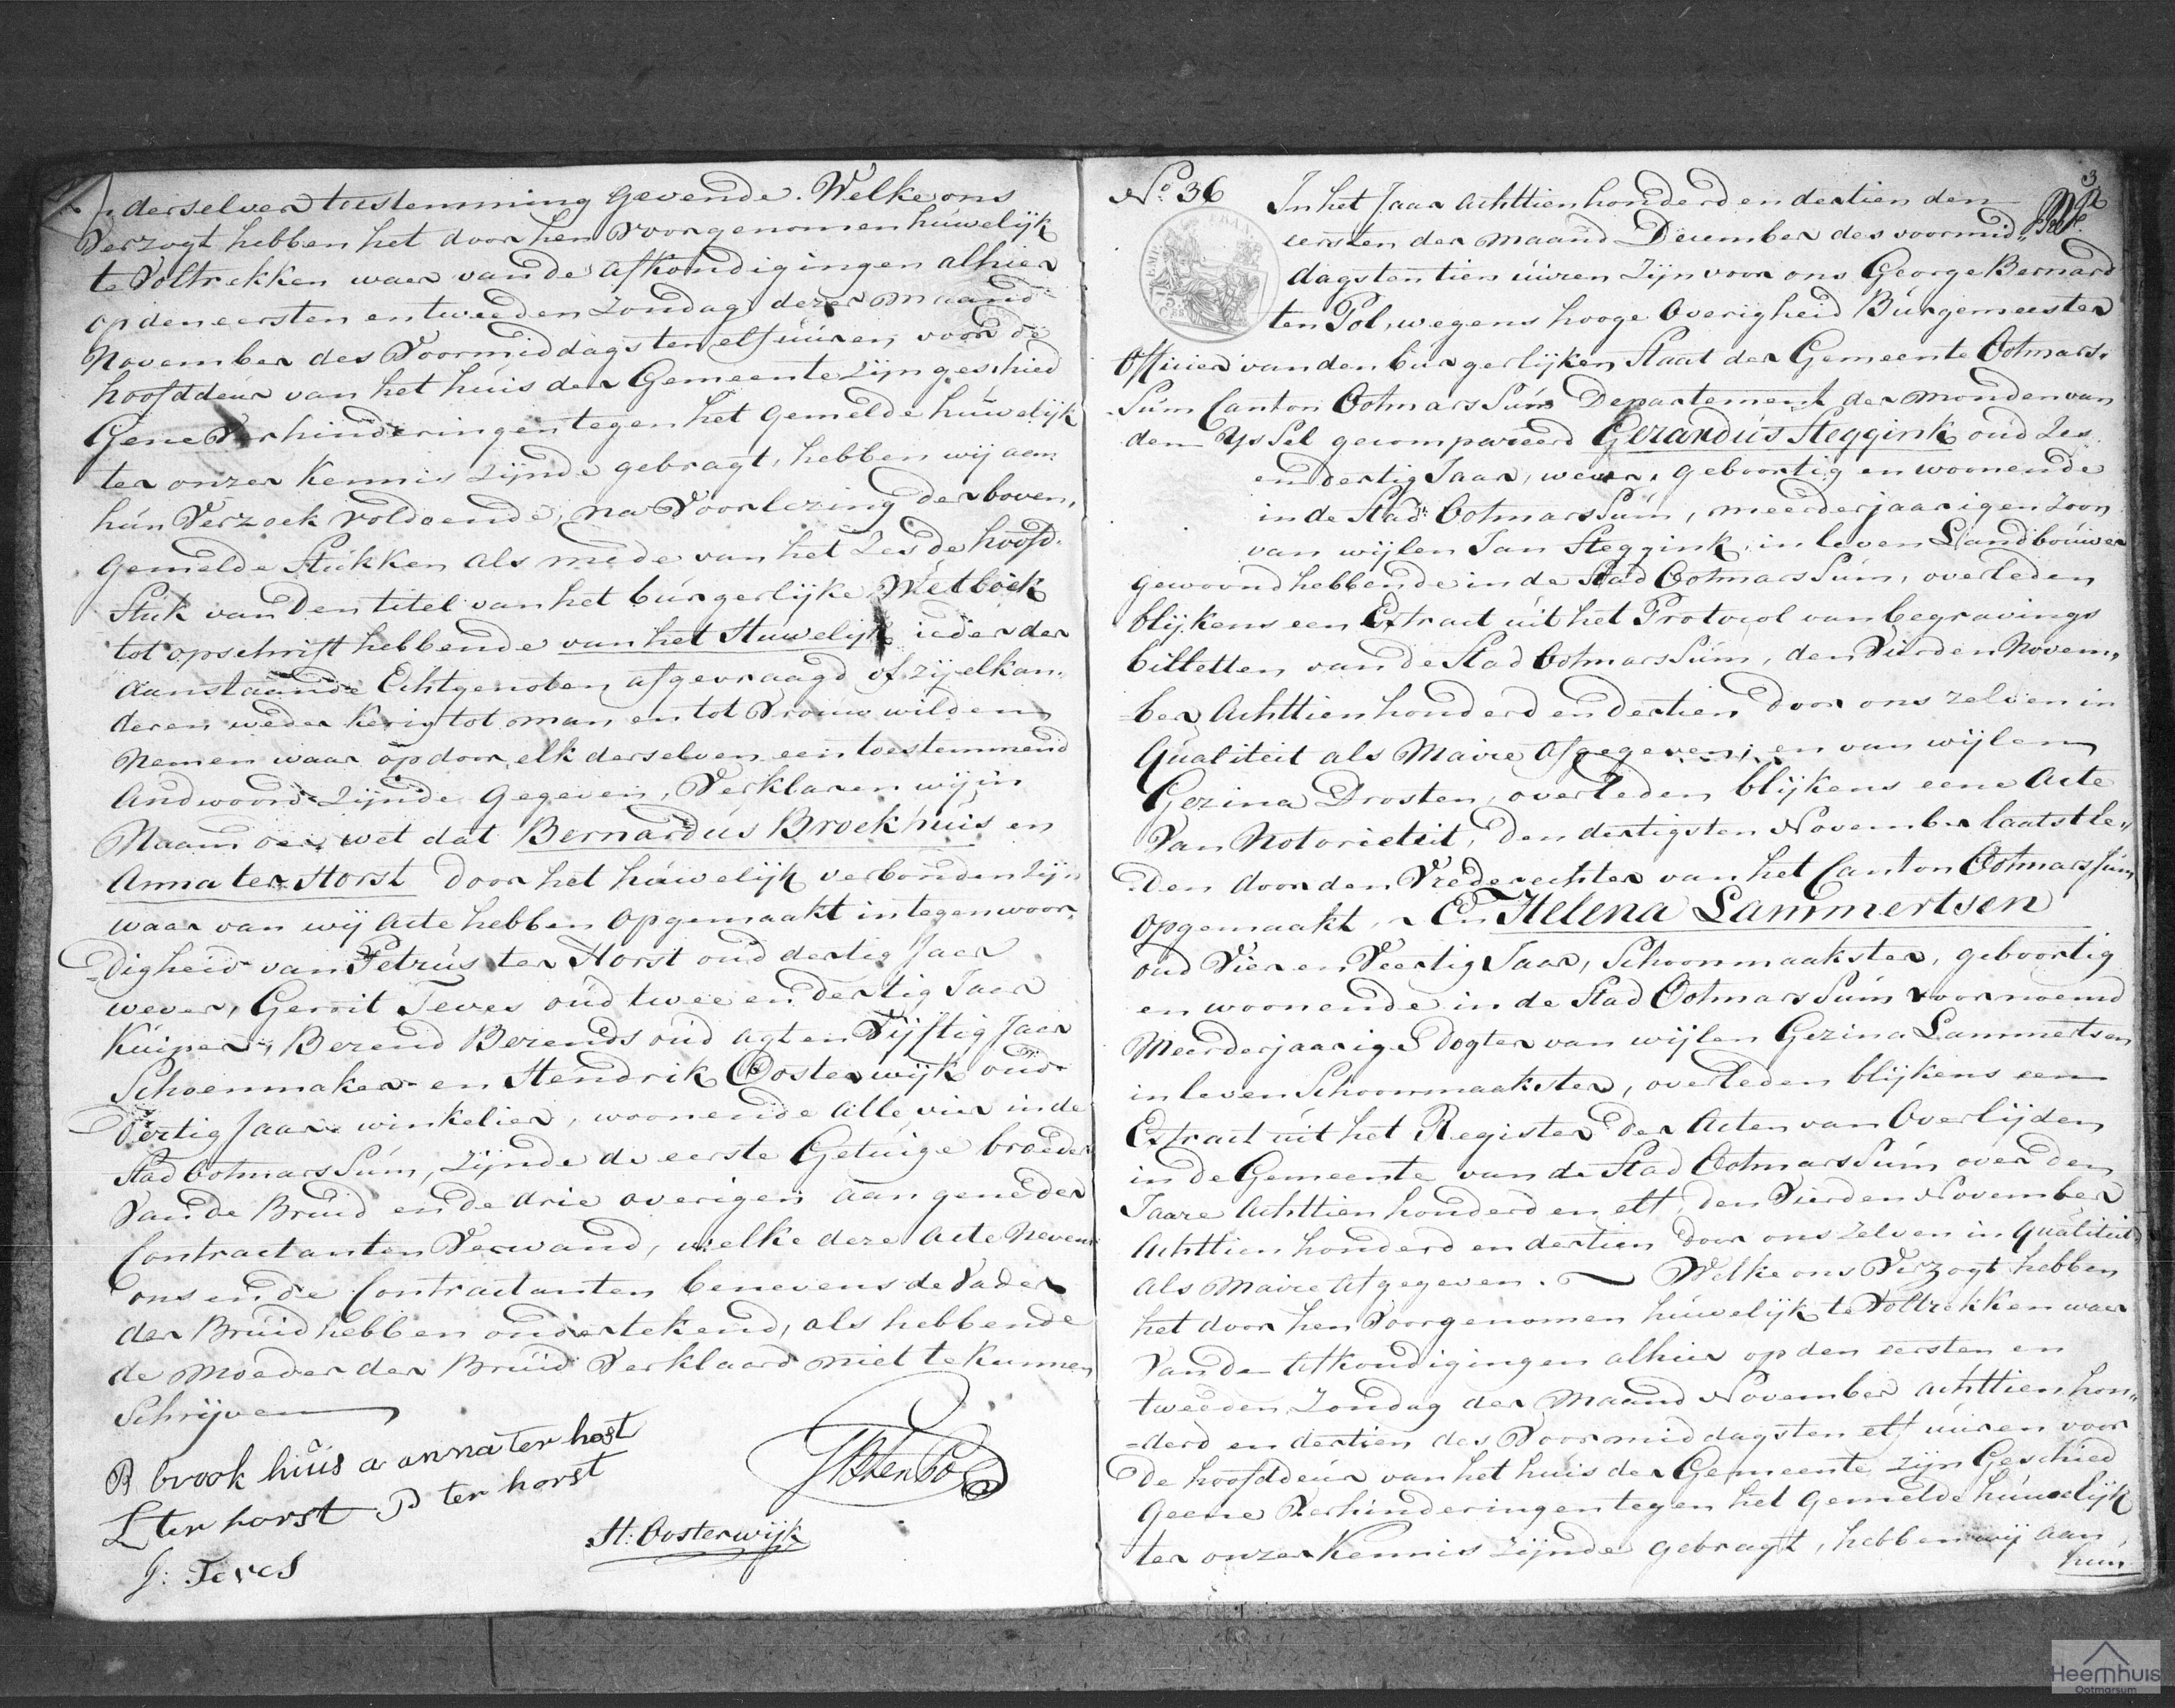 derselver toestemming gevende. Welke ons
Verzogt hebben het door hen Voorgenomen huwelijk
te Voltrekken waer van de afkondigingen alhier
op den eersten en tweeden Zondag dezer maand
November des Voormiddags ten elf uuren voor de
hoofddeur van het huis der Gemeente zijn geschied
Gene Verhinderingen tegen het gemelde huwelijk
ter onzer kennis zijnde gebragt, hebben wij aen
hun Verzoek voldoende, na Voorlezing der boven,
gemelde Stukken als mede van het Zesde hoofd-
Stuk van Den titel van het burgerlijke Wetboek
tot opschrift hebbende van het Huwelijk ieder der
aanstaande Echtgenoten afgevraagd of zij elkan-
deren weder kerig tot man en tot Vrouw wilden
Nemen waar op door elk derselven een toestemmend
Andwoord zijnde Gegeven, Verklaren wij in
Naam der wet dat Bernardus Broekhuis en
Anna ter Horst door het huwelijk verbonden zijn
waar van wij acte hebben opgemaakt in tegenwoor-
digheid van Petrus ter Horst oud dertig Jaer
wever, Gerrit Teves oud twee en dertig Jaer
Kuiper, Berend Berends oud agt en Vijftig Jaer
Schoenmaker en Hendrik Oosterwijk oud
Dertig Jaar winkelier, woonende alle vier in de
Stad Ootmarssum, zijnde de eerste Getuige broeder
Van de Bruid en de drie overigen aan geneder
Contractanten Verwand, welke deze acte nevens
ons en de Contractanten benevens de Vader
der Bruid hebben ondertekend, als hebbende
de Moeder der Bruid Verklaard niet te kunnen
Schrijven
B brook huis a anna ter horst
L ter horst P ter horst
GB ten Pol
H: Oosterwijk
J: Teves
No. 36
3
In het Jaar Achttienhonderd en dertien den
eersten der Maand December des voormid„
dags ten tien uuren Zijn voor ons George Bernard
ten Pol, wegens hooge Overigheid Burgemeester
Officier van den burgerlijken Staat der Gemeente Ootmars-
Sum Canton Ootmarssum Departement der monden van
den YsSel gecompareerd Gerardus Steggink oud Zes
en dertig Jaar, wever, geboortig en woonende
in de Stad Ootmarssum, meerderjaarigen zoon
van wijlen Jan Steggink, in leven Landbouwer
gewoond hebbende in de Stad Ootmarssum, overleden
blijkens een Extract uit het Protocol van begravings
billetten van de Stad Ootmarssum, den Vierden Novem,
ber Achttienhonderd en dertien door ons zelven in
Qualiteit als Maire Afgegeven; en van wijlen
Gezina Drosten, overleden blijkens eene Acte
Van Notorieteit, den dertigsten November laatstle„
den door den Vrederechter van het Canton Ootmarssum
opgemaakt, En Helena Lammertsen
oud Vier en Veertig Jaar, Schoonmaakster, geboortig
en woonende in de Stad Ootmarssum voornoemd
Meerderjaarige Dogter van wijlen Gezina Lammertsen
in leven Schoonmaakster, overleden blijkens een
Extract uit het Register der Acten van Overlijden
in de Gemeente van de Stad Ootmarssum over den
Jaare Achttienhonderd en elf, den Vierden November
Achttienhonderd en dertien door ons zelven in Qualiteit
als Maire Afgegeven. Welke ons Verzogt hebben
het door hen Voorgenomen huwelijk te Voltrekken waer
Van de Afkondigingen alhier op den eersten en
tweeden Zondag der Maand November achttienhon„
derd en dertien des Voormiddags ten elf uuren voor
De hoofddeur van het huis der Gemeente zijn Geschied
Geene Verhinderingen tegen het Gemelde huwelijk
ter onzer Kennis zijnde gebragt, hebben wij aan
hun
Heemhuis
Ootmarsum